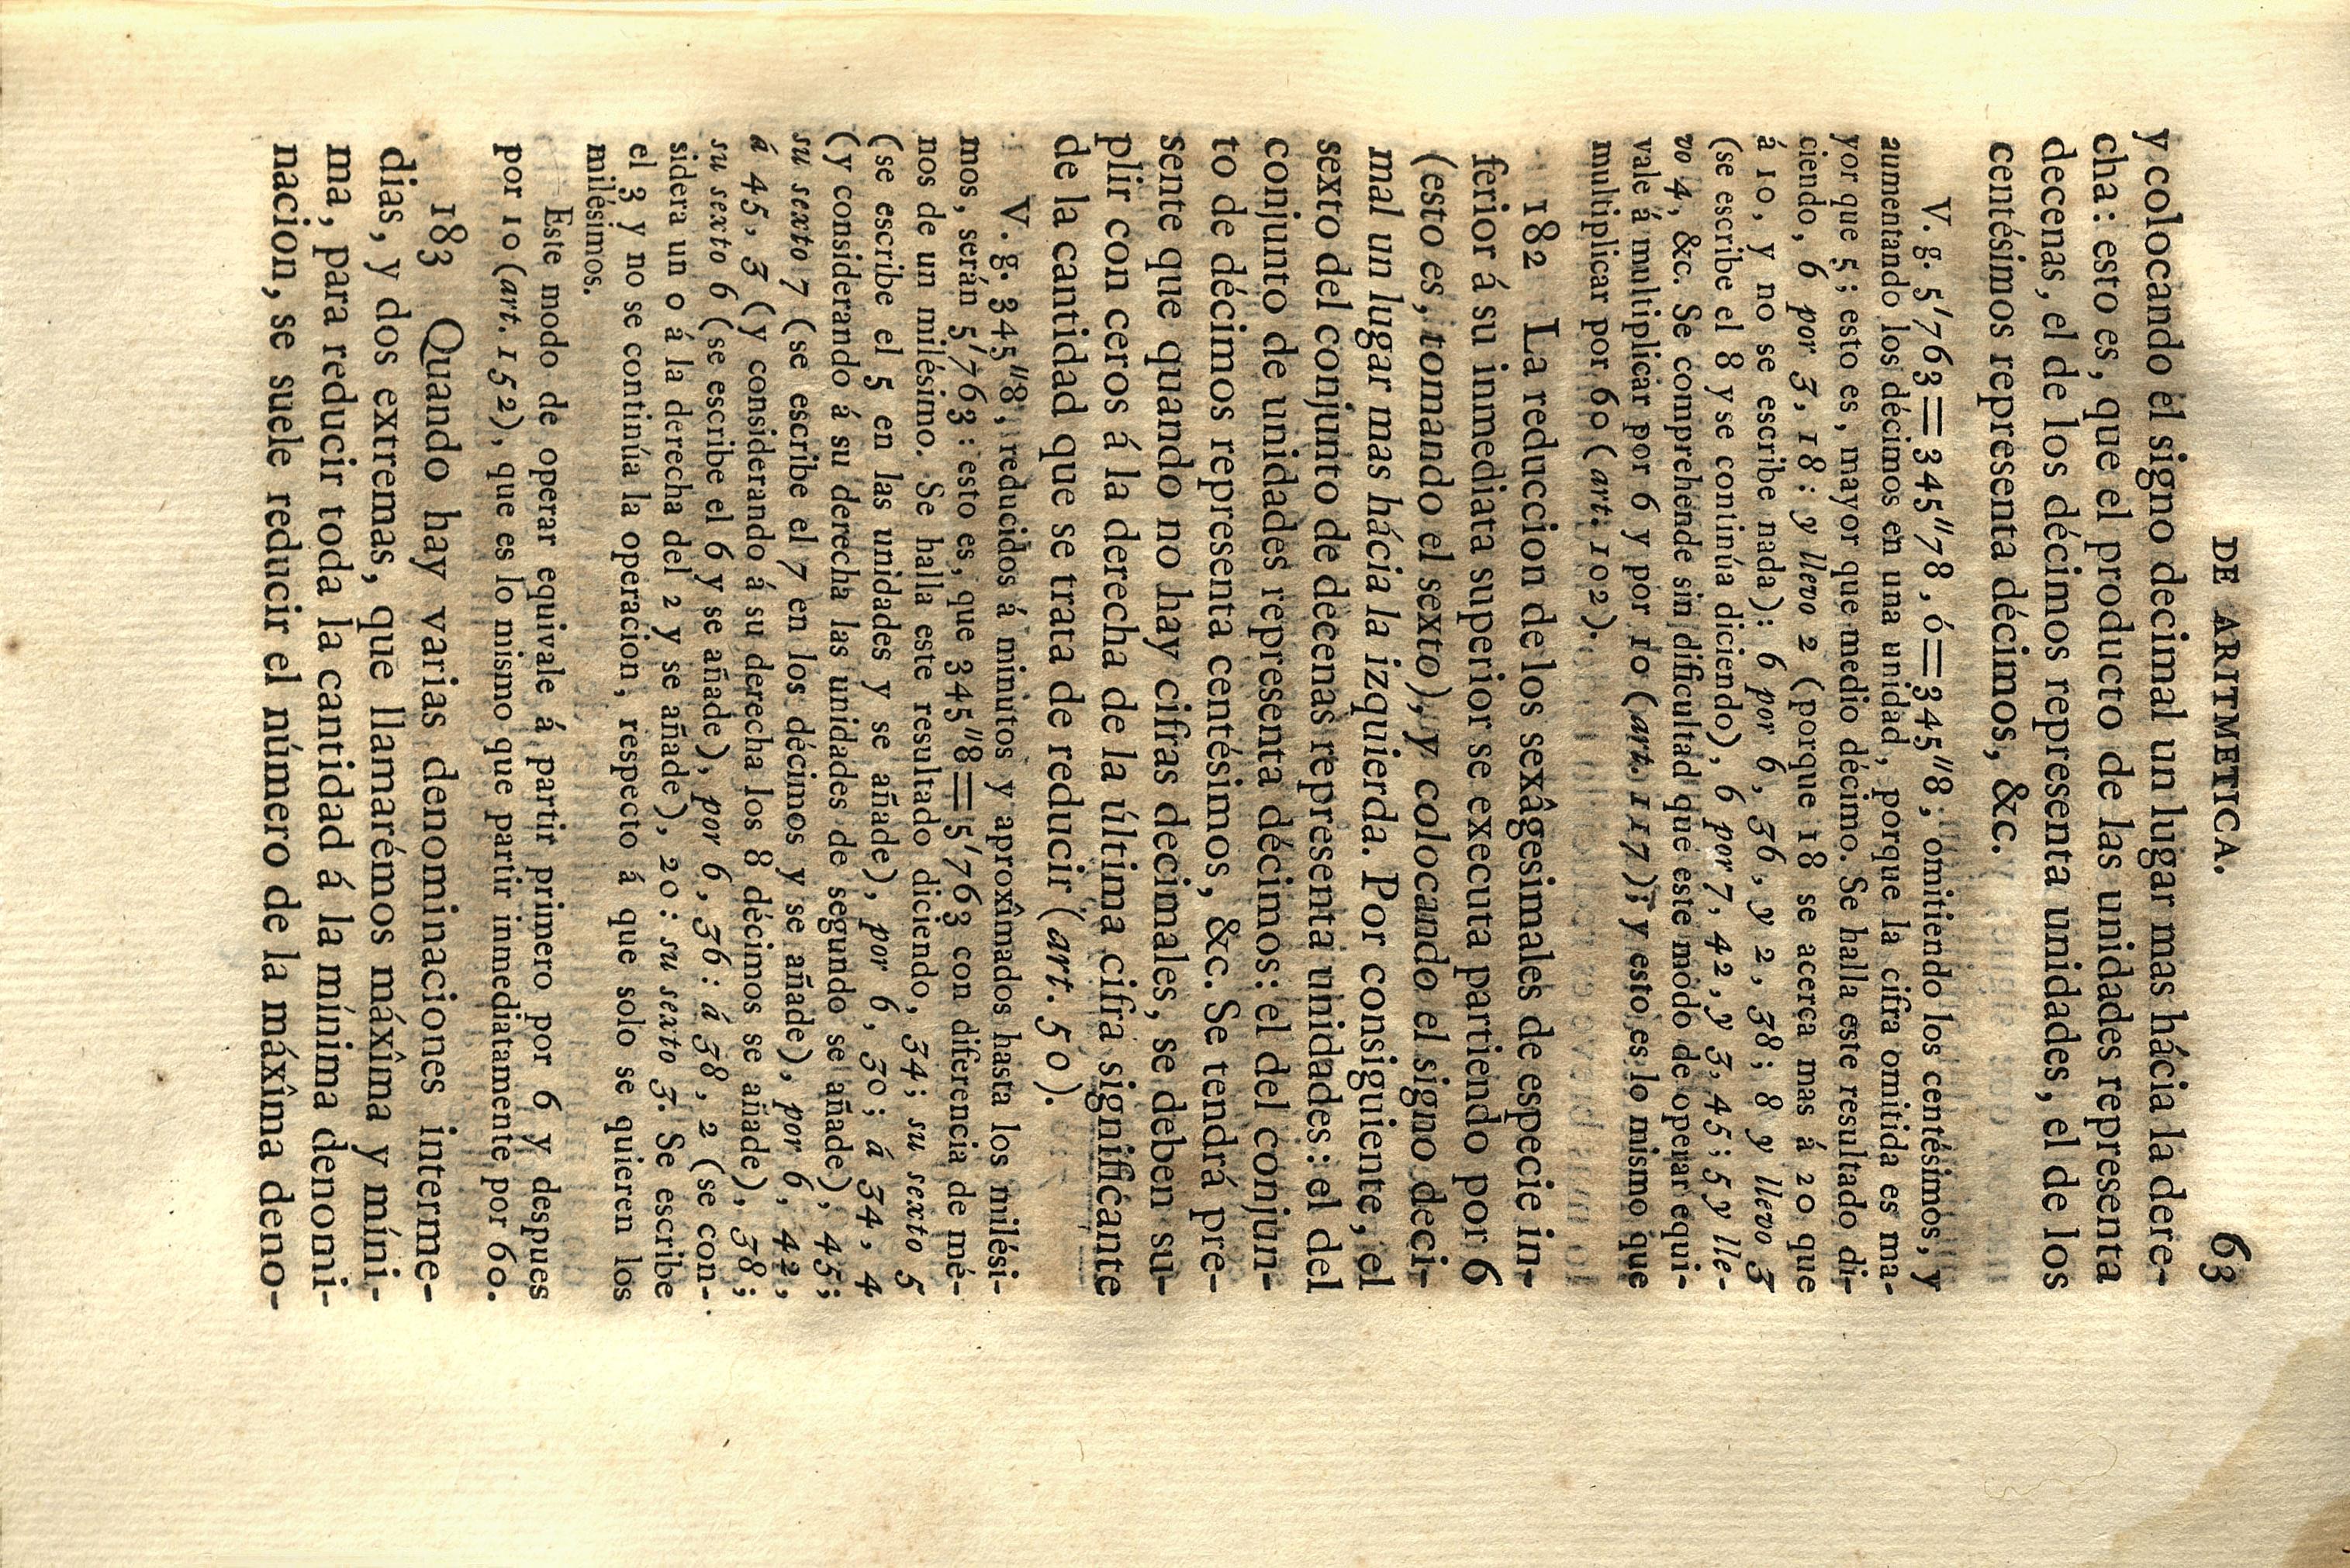 DE ARITMETICA. 63
y colocando el signo decimal un lugar mas hácia la dere-
cha: esto es, que el producto de las unidades representa
decenas, el de los décimos representa unidades, el de los
centésimos representa décimos, &c.
V. g. 5'763=345"78, ó=345"8, omitiendo los centésimos, y
aumentando los décimos en una unidad, porque la cifra omitida es ma-
yor que 5; esto es, mayor que medio décimo. Se halla este resultado di-
ciendo, 6 por 3, 18: y llevo 2 (porque 18 se acerca mas á 20 que
á 10, y no se escribe nada): 6 por 6, 36, y 2, 38; 8 y llevo 3
(se escribe el 8 y se continúa diciendo), 6 por 7, 42, y 3, 45; 5 y lle-
vo 4, &c. Se comprehende sin dificultad que este modo de operar equi-
vale á multiplicar por 6 y por 10 (art. 117); y esto es lo mismo que
multiplicar por 60 (art. 102).
182 La reduccion de los sexâgesimales de especie in-
ferior á su inmediata superior se executa partiendo por 6
(esto es, tomando el sexto), y colocando el signo deci-
mal un lugar mas hácia la izquierda. Por consiguiente, el
sexto del conjunto de decenas representa unidades: el del
conjunto de unidades representa décimos: el del conjun-
to de décimos representa centésimos, &c. Se tendrá pre-
sente que quando no hay cifras decimales, se deben su-
plir con ceros á la derecha de la última cifra significante
de la cantidad que se trata de reducir (art. 50).
V. g. 345"8, reducidos á minutos y aproxîmados hasta los milési-
mos, serán 5'763: esto es, que 345"8=5'763 con diferencia de mé-
nos de un milésimo. Se halla este resultado diciendo, 34; su sexto 5
(se escribe el 5 en las unidades y se añade), por 6, 30; á 34, 4
(y considerando á su derecha las unidades de segundo se añade), 45;
su sexto 7 (se escribe el 7 en los décimos y se añade), por 6, 42,
á 45, 3 (y considerando á su derecha los 8 décimos se añade), 38;
su sexto 6 (se escribe el 6 y se añade), por 6, 36: á 38, 2 (se con-
sidera un 0 á la derecha del 2 y se añade), 20: su sexto 3. Se escribe
el 3 y no se continúa la operacion, respecto á que solo se quieren los
milésimos.
Este modo de operar equivale á partir primero por 6 y despues
por 10 (art. 152), que es lo mismo que partir inmediatamente por 60.
183 Quando hay varias denominaciones interme-
dias, y dos extremas, que llamarémos máxîma y míni-
ma, para reducir toda la cantidad á la mínima denomi-
nacion, se suele reducir el número de la máxîma deno-